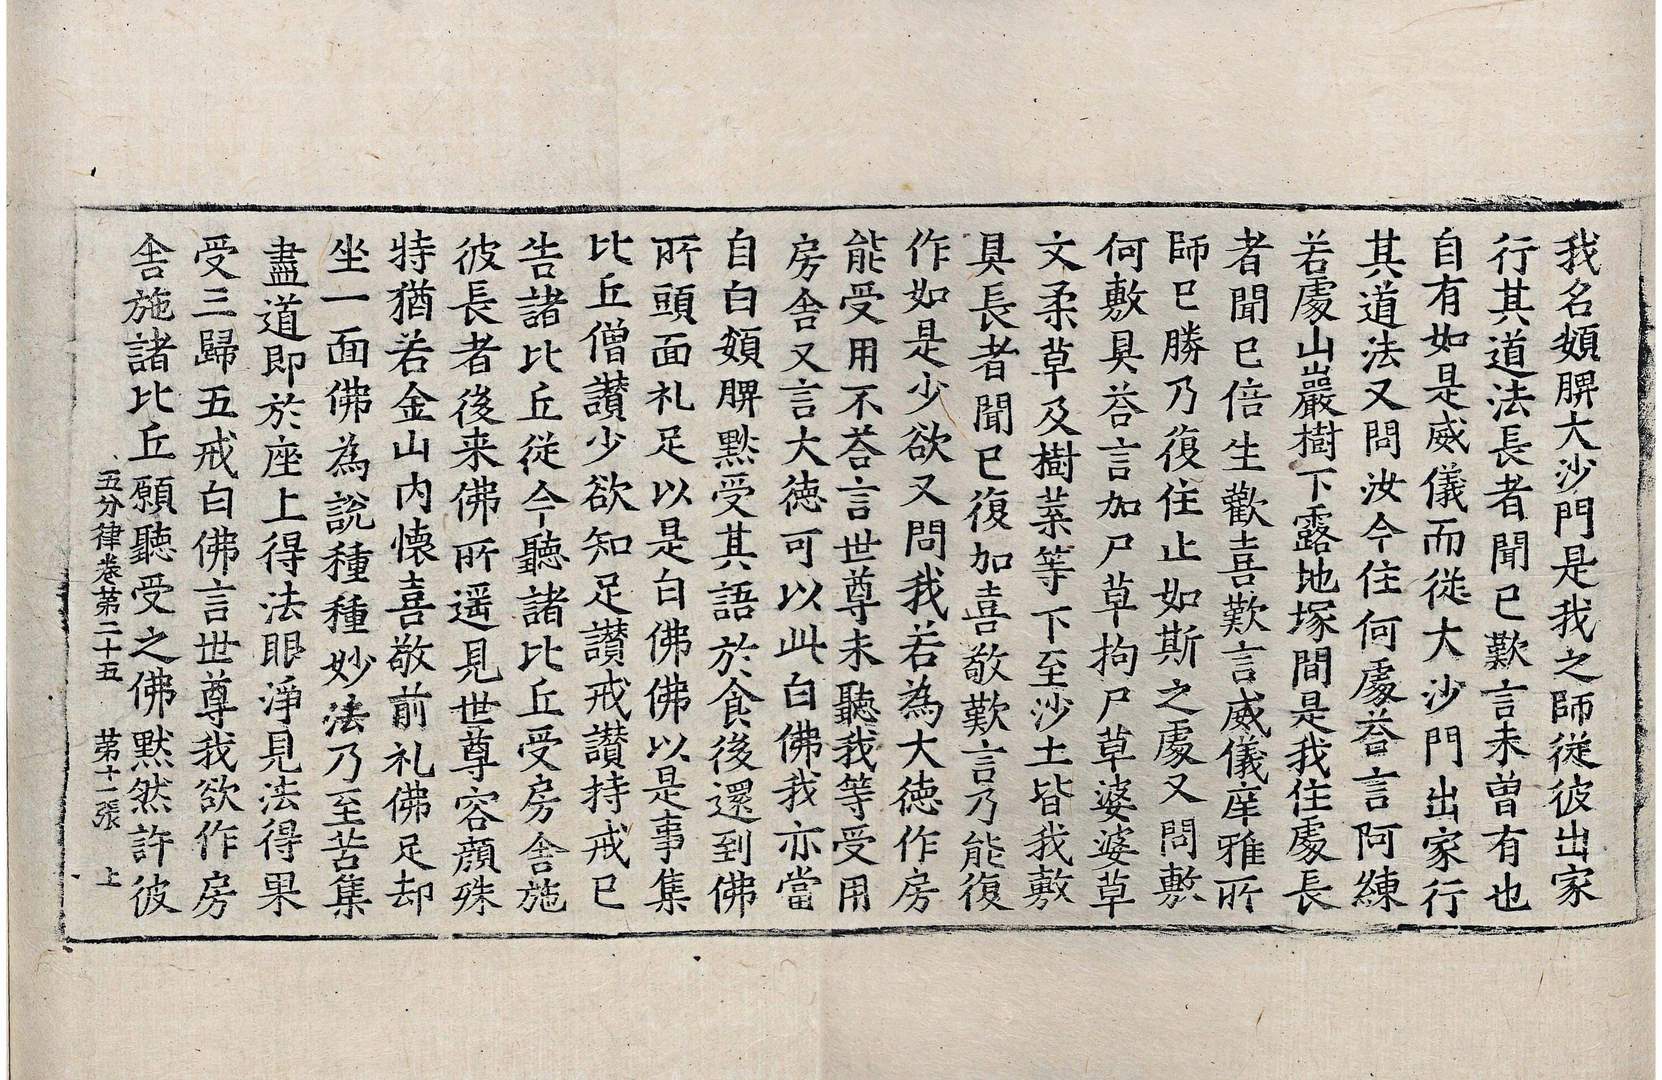 我名頞髀大沙門是我之師從彼出家
行其道法長者聞已歎言未曽有也
自有如是威儀而從大沙門出家行
其道法又問汝今住何處荅言阿練
若處山巖樹下露地塚間是我住處長
者聞已倍生歡喜歎言威儀庠雅所
師已勝乃復住止如斯之處又問敷
何敷具荅言加尸草拘尸草婆婆草
文柔草及樹葉等下至沙土皆我敷
具長者聞已復加喜敬歎言乃能復
作如是少欲又問我若為大德作房
能受用不荅言世尊未聽我等受用
房舎又言大德可以此白佛我亦當
自白頞髀黙受其語於食後還到佛
所頭面礼足以是白佛佛以是事集
比丘僧讃少欲知足讃戒讃持戒已
告諸比丘從今聽諸比丘受房舎施
彼長者後来佛所遥見世尊容顔殊
特猶若金山内懐喜敬前礼佛足却
坐一面佛為說種種妙法乃至苦集
盡道即於座上得法眼淨見法得果
受三歸五戒白佛言世尊我欲作房
舎施諸比丘願聽受之佛黙然許彼
五分律卷第二十五 第十一張 上